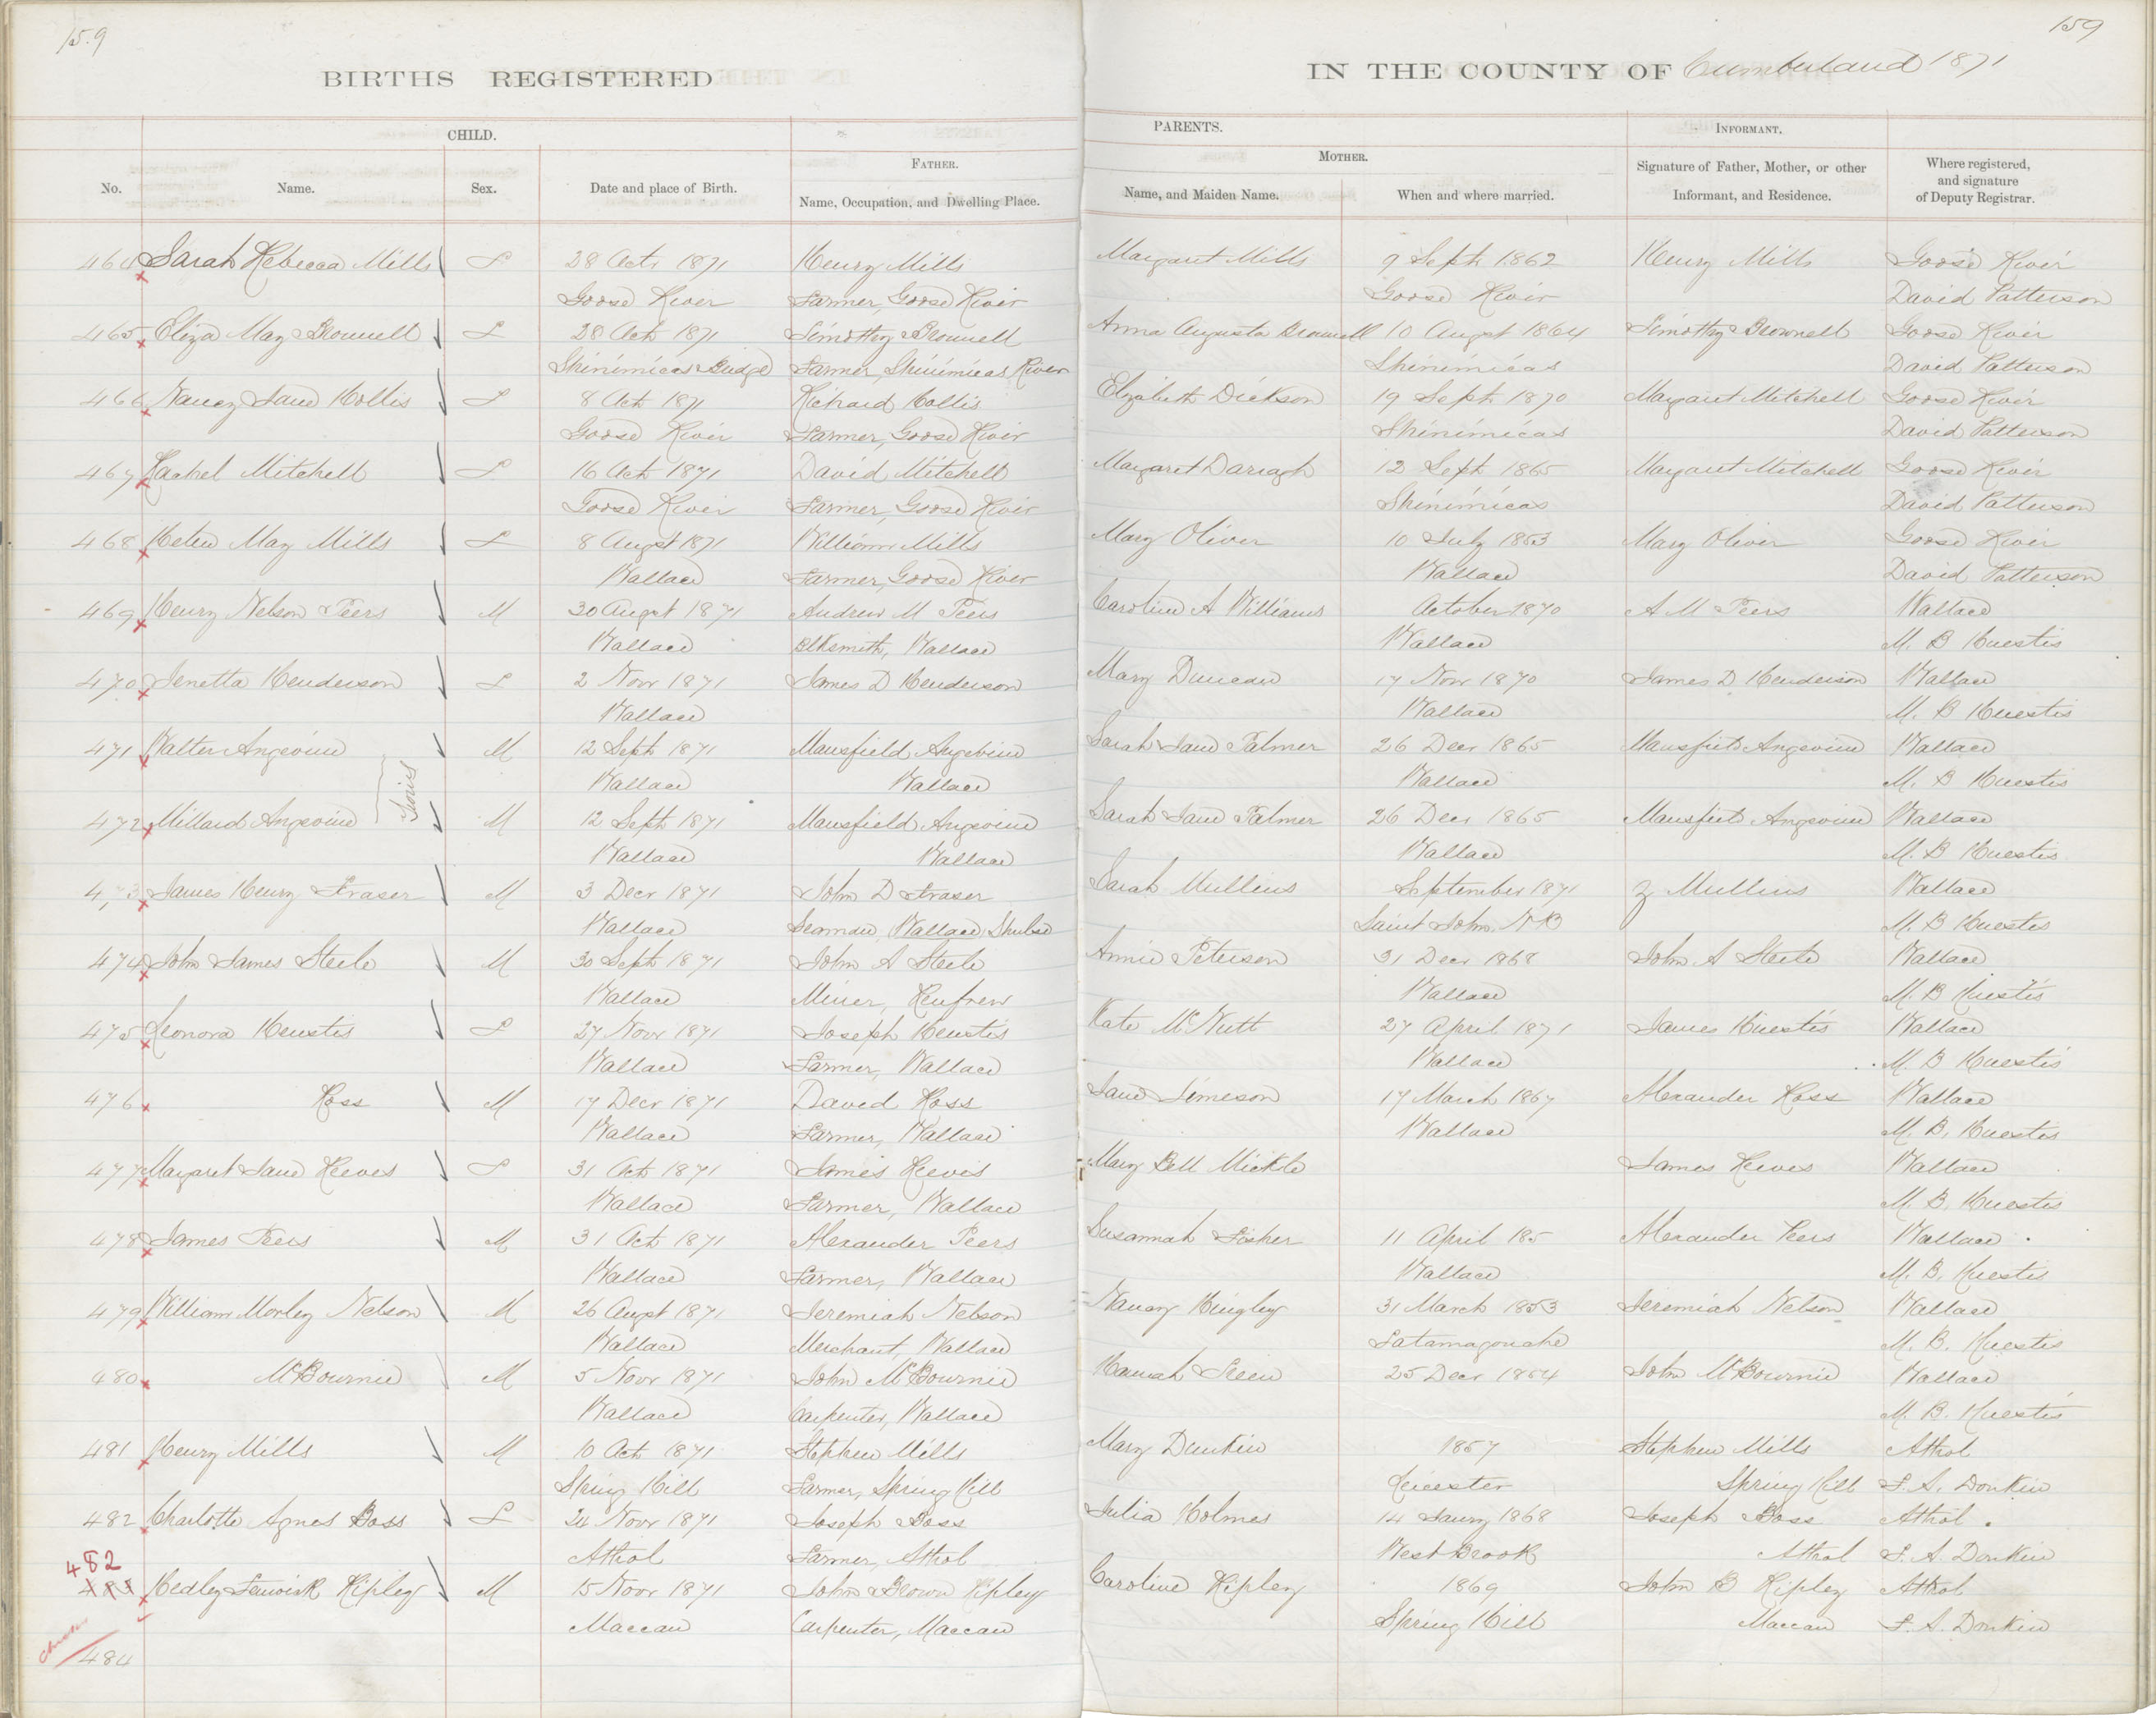 159
159
BIRTHS REGISTERED
IN THE COUNTY OF Cumberland 1871
CHILD.
PARENTS.
INFORMANT.
FATHER.
MOTHER.
No.
Name.
Sex.
Date and place of Birth.
Name, Occupation, and Dwelling Place.
Name, and Maiden Name.
When and where married.
Signature of Father, Mother, or other Informant, and Residence.
Where registered, and signature of Deputy Registrar.
464 Sarah Rebecca Mills F 28 Octr 1871 Henry Mills Margaret Mills 9 Sept 1862 Henry Mills Goose River
Goose River Farmer, Goose River Goose River David Patterson
465 Eliza May Brownell F 28 Oct 1871 Timothy Brownell Anna Augusta Brownell 10 Augst 1864 Timothy Brownell Goose River
Shinimicas Bridge Farmer, Shinimicas River Shinimicas David Patterson
466 Nancy Jane Hollis F 8 Oct 1871 Richard Hollis Elizabeth Dickson 19 Sept 1870 Margaret Mitchell Goose River
Goose River Farmer, Goose River Shinimicas David Patterson
467 Rachel Mitchell F 16 Oct 1871 David Mitchell Margaret Darragh 12 Sept 1865 Margaret Mitchell Goose River
Goose River Farmer, Goose River Shinimicas David Patterson
468 Helen May Mills F 8 Augst 1871 William Mills Mary Oliver 10 July 1853 Mary Oliver Goose River
Wallace Farmer, Goose River Wallace David Patterson
469 Henry Nelson Peers M 30 Augst 1871 Andrew M Peers Caroline A Williams October 1870 A M Peers Wallace
Wallace Blksmith, Wallace Wallace M. B Huestis
470 Jenetta Henderson F 2 Novr 1871 James D Henderson Mary Duncan 17 Novr 1870 James D Henderson Wallace
Wallace Wallace M. B Huestis
471 Walter Angevine M 12 Sept 1871 Mansfield Angevine Sarah Jane Palmer 26 Decr 1865 Mansfield Angevine Wallace
Twins
Wallace Wallace Wallace M. B Huestis
472 Millard Angevine M 12 Sept 1871 Mansfield Angevine Sarah Jane Palmer 26 Decr 1865 Mansfield Angevine Wallace
Wallace Wallace Wallace M. B Huestis
473 James Henry Fraser M 3 Decr 1871 John D Fraser Sarah Mullins September 1871 Z Mullins Wallace
Wallace Seaman, Wallace Saint John, NB M. B Huestis
474 John James Steele M 30 Sept 1871 John A Steele Annie Peterson 31 Decr 1868 John A Steele Wallace
Wallace Miner, Renfrew Wallace M. B Huestis
475 Leonora Heustis F 27 Novr 1871 Joseph Heustis Kate McNutt 27 April 1871 James Huestis Wallace
Wallace Farmer, Wallace Wallace M. B Huestis
476 Ross M 17 Decr 1871 David Ross Jane Simeson 17 March 1867 Alexander Ross Wallace
Wallace Farmer, Wallace Wallace M. B. Huestis
477 Margaret Jane Reeves F 31 Oct 1871 James Reevis Mary Bell Mickle James Reeves Wallace
Wallace Farmer, Wallace M. B. Huestis
478 James Peers M 31 Oct 1871 Alexander Peers Susannah Fisher 11 April 185 Alexander Peers Wallace
Wallace Farmer, Wallace Wallace M. B. Huestis
479 William Morley Nelson M 26 Augst 1871 Jeremiah Nelson Nancy Hingley 31 March 1853 Jeremiah Nelson Wallace
Wallace Merchant, Wallace Tatamagouche M. B. Huestis
480 McBournie M 5 Novr 1871 John McBournie Hannah 25 Decr 1864 John McBournie Wallace
Wallace Carpenter, Wallace M. B. Huestis
481 Henry Mills M 10 Oct 1871 Stephen Mills Mary Dunkin 1857 Stephen Mills Athol
Spring Hill Farmer, Spring Hill Leicester Spring Hill F. A. Donkin
482 Charlotte Agnes Boss F 24 Novr 1871 Joseph Boss Julia Holmes 14 Jany 1868 Joseph Boss Athol
Athol Farmer, Athol West Brook Athol F. A. Donkin
482
483 Hedley Fenwick Ripley M 15 Novr 1871 John Brown Ripley Caroline Ripley 1869 John B Ripley Athol
Maccan Carpenter, Maccan Spring Hill Maccan F. A. Donkin
484